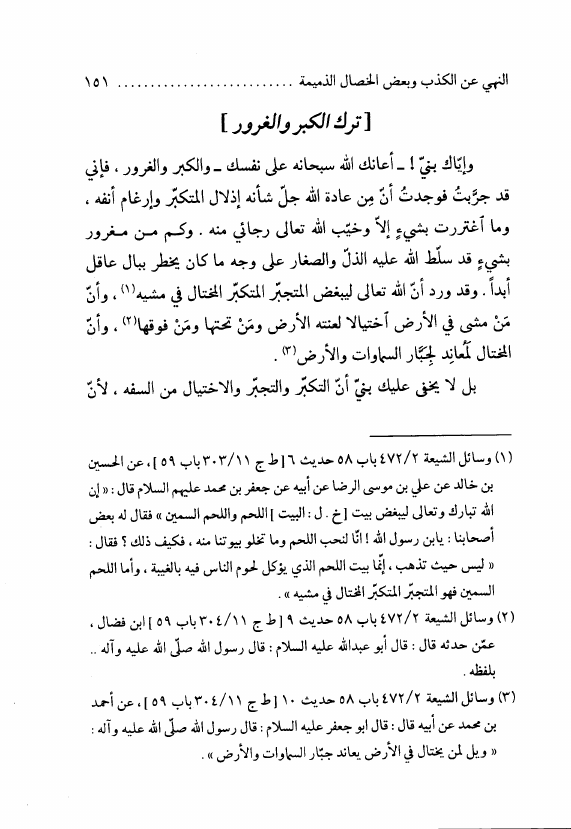 النهي عن الكذب وبعض الخصال الذميمة ........................... ١٥١
[ ترك الكبر والغرور ]
وإيّاك بنيّ ! ـ أعانك الله سبحانه على نفسك ـ والكبر والغرور ، فإني
قد جرَّبتُ فوجدتُ أنّ مِن عادة الله جلّ شأنه إذلال المتكبّر وإرغام أنفه ،
وما اَغتررت بشيءٍ إلاّ وخيّب الله تعالى رجائي منه . وكـم مـن مـغرور
بشيءٍ قد سلّط الله عليه الذلّ والصغار على وجه ما كان يخطر ببال عاقل
أبداً . وقد ورد أنّ الله تعالى ليبغض المتجبّر المتكبّر المختال في مشيه(١) ، وأنّ
مَنْ مشى في الأرض اَختيالا لعنته الأرض ومَنْ تحتها ومَنْ فوقها(٢) ، وأنّ
المختال لَمُعانِد لِجَبَّار السماوات والأرض(٣) .
بل لا يخفى عليك بنيّ أنّ التكبّر والتجبّر والاختيال من السفه ، لأنّ
(١) وسائل الشيعة ٤٧٢/٢ باب ٥٨ حديث ٦ [ ط ج ٣٠٣/١١ باب ٥٩ ] ، عن الحسين
بن خالد عن علي بن موسى الرضا عن أبيه عن جعفر بن محمد عليهم السلام قال : « إن
الله تبارك وتعالى ليبغض بيت [ خ . ل : البيت ] اللحم واللحم السمين » فقال له بعض
أصحابنا : يابن رسول الله ! انّا لنحب اللحم وما تخلو بيوتنا منه ، فكيف ذلك ؟ فقال :
« ليس حيث تذهب ، إنّما بيت اللحم الذي يؤكل لحوم الناس فيه بالغيبة ، وأما اللحم
السمين فهو المتجبّر المتكبّر المختال في مشيه » .
(٢) وسائل الشيعة ٤٧٢/٢ باب ٥٨ حديث ٩ [ ط ج ٣٠٤/١١ باب ٥٩ ] ابن فضال ،
عمّن حدثه قال : قال أبو عبدالله عليه السلام : قال رسول الله صلّى الله عليه وآله ..
بلفظه .
(٣) وسائل الشيعة ٤٧٢/٢ باب ٥٨ حديث ١٠ [ ط ج ٣٠٤/١١ باب ٥٩ ] ، عن أحمد
بن محمد عن أبيه قال : قال ابو جعفر عليه السلام : قال رسول الله صلّى الله عليه وآله :
« ويل لمن يختال في الأرض يعاند جبّار السماوات والأرض » .